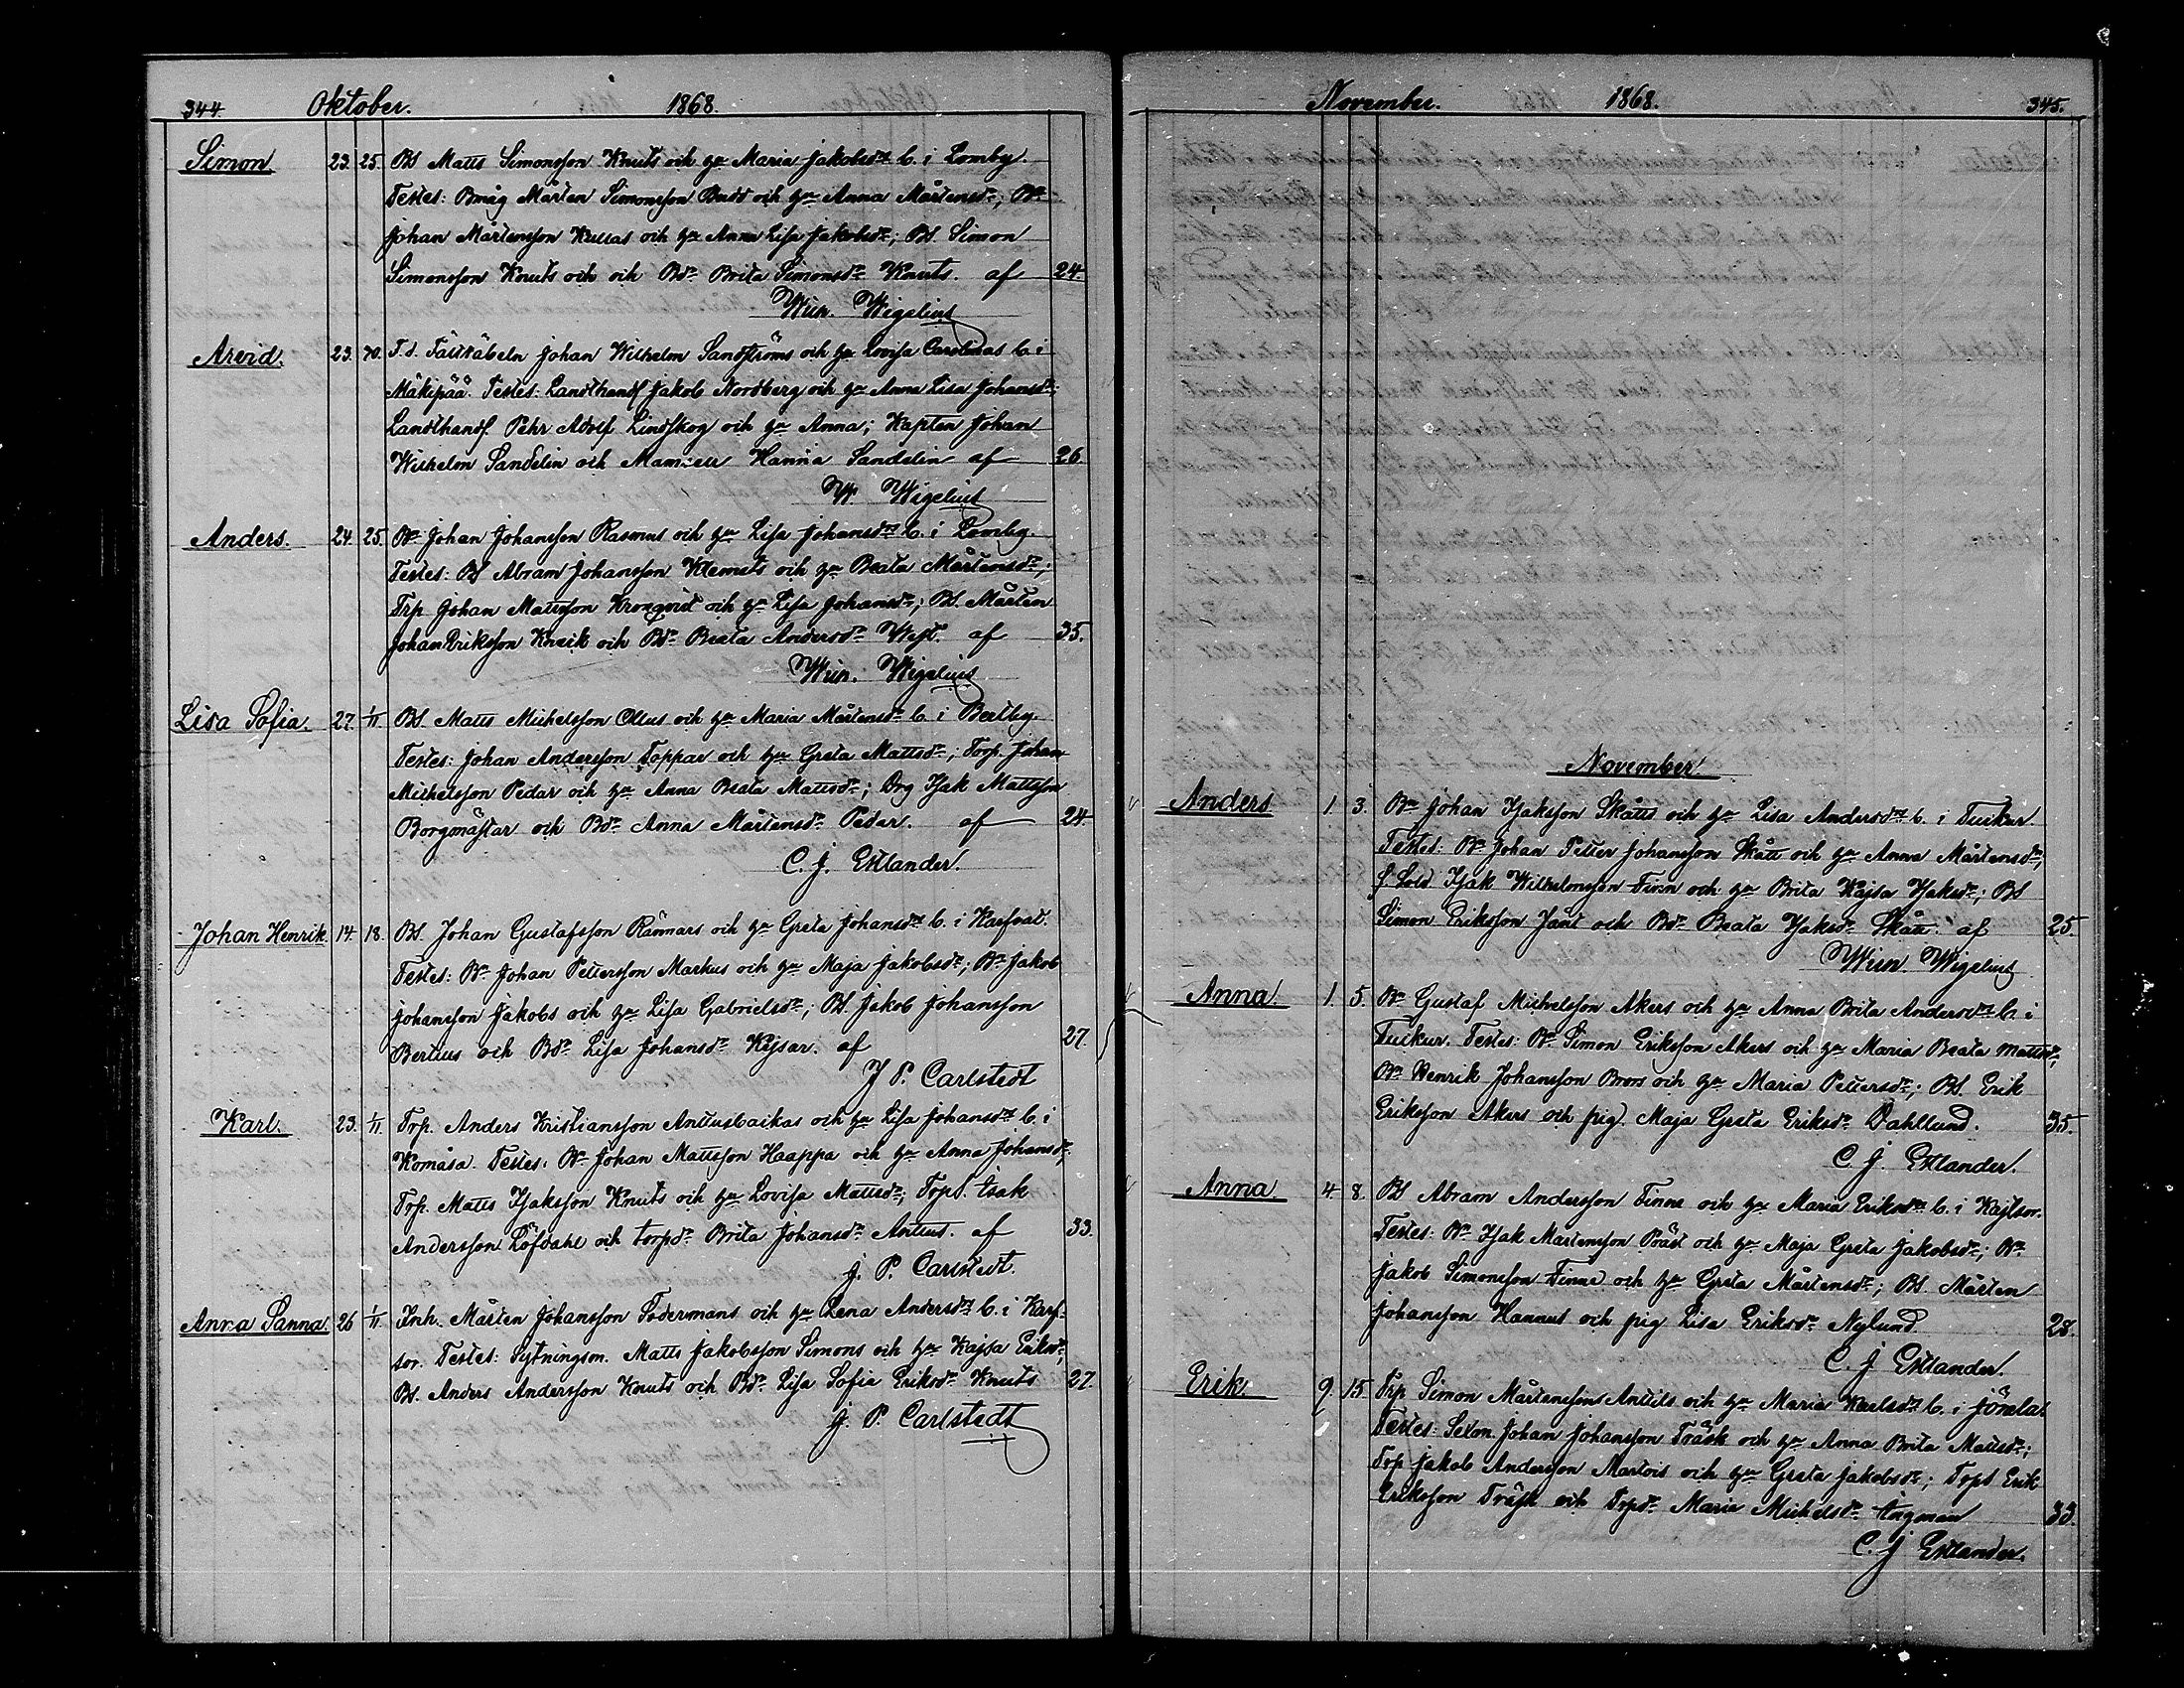 344. Oktober. 1868.
Simon. 23. 25. Bs Matts Simonsson Knuts och h:u Maria Jakobsd:rs b. i Lomby.
Testes: Bmåg Mårten Simonsson Budd och h:u Anna Mårtensd:r; B:n
Johan Mårtensson Kullas och h:u Anna Lisa Jakobsd:r; Bs. Simon
Simonsson Knuts och och Bd:r Brita Simonsd:r Knuts. af 24.
Wm. Wigelius
Arvid. 23. 30. Johan Wilhelm Sandströms och h:u Lovisa Carolinas b. i
Mäkipää. Testes: Landthandl Jakob Nordberg och h:u Anna Lisa Johansd:r;
Landthandl. Pehr Adolf Lindskog och h:u Anna; Kapten Johan
Wilhelm Sandelin och Mam:ell Hanna Sandelin af 26.
W. Wigelius
Anders. 24. 25. B:n Johan Johansson Rasmus och h:u Lisa Johansd:rs b. i Lomby.
Testes: Bs Abram Johansson Klemets och h:u Beata Mårtensd:r;
Trp. Johan Mattsson Kronqvist och h:u Lisa Johansd:r; Bs. Mårten
Johan Eriksson Knaik och Bd:r Beata Andersd:r West. af 35.
Wm. Wigelius
Lisa Sofia. 27. 1/11. Bs. Matts Michelsson Ollus och h:u Maria Mårtensd:rs b. i Bertby.
Testes: Johan Andersson Toppar och h:u Greta Mattsd:r; Torp. Johan
Michelsson Pedar och h:u Anna Beata Mattsd:r; Drg Isak Mattsson
Borgmästar och Bd:r Anna Mårtensd:r Pedar. af 24.
C. J. Estlander.
Johan Henrik. 14. 18. Bs. Johan Gustafsson Rännars och h:u Greta Johansd:rs b. i Karfvat.
Testes: B:n Johan Pettersson Markus och h:u Maja Jakobsd:r; B:n Jakob
Johansson Jakobs och h:u Lisa Gabrielsd:r; Bs. Jakob Johansson
Bertils och Bd:r Lisa Johansd:r Kejsar. af 27.
J P. Carlstedt
Karl. 23. 1/11. Trp. Anders Kristiansson Anttusbackas och h:u Lisa Johansd:rs b. i
Komåsa. Testes: B:n Johan Mattsson Haappa och h:u Anna Johansd:r;
Trp. Matts Isaksson Knuts och h:u Lovisa Mattsd:r; Trps. Isak
Andersson Löfdahl och torpd:r Brita Johansd:r Anttus. af 33.
J. P. Carlstedt.
Anna Sanna. 26 1/11. Inh. Mårten Johansson Södermans och h:u Lena Andersd:rs b. i Karf-
sor. Testes: Sytningsm. Matts Jakobsson Simons och h:u Kajsa Eriksd:r;
Bs. Anders Andersson Knuts och Bd:r Lisa Sofia Eriksd:r Knuts 27
J. P. Carlstedt
November. 1868. 345.
November.
Anders 1. 3. B:n Johan Isaksson Skåtts och h:u Lisa Andersd:rs b. i Tuckur.
Testes: B:n Johan Petter Johansson Skått och h:u Anna Mårtensd:r;
f Sold Isak Wilhelmsson Finn och h:u Brita Kajsa Isaksd:r; Bs
Simon Eriksson Jånt och Bd:r Beata Isaksd:r Skått. af 25.
Wm. Wigelius
Anna. 1. 5. B:n Gustaf Michelsson Akers och h:u Anna Brita Andersd:rs b. i
Tuckur. Testes: B:n Simon Eriksson Akers och h:u Maria Beata Mattsd:r;
B:n Henrik Johansson Brors och h:u Maria Pettersd:r; Bs. Erik
Eriksson Akers och pig. Maja Greta Eriksd:r Dahllund. 35.
C. J. Estlander.
Anna 4 8. Bs Abram Andersson Finne och h:u Maria Eriksd:rs b. i Kajtsor.
Testes: B:n Isak Mårtensson Präst och h:u Maja Greta Jakobsd:r; B:n
Jakob Simonsson Finne och h:u Greta Mårtensd:r; Bs. Mårten
Johansson Hannus och pig Lisa Eriksd:r Nylund 28.
C. J Estlander.
Erik 9 15. Trp Simon Mårtensson Anttils och h:u Maria Karlsd:rs b. i Jörala.
Testes: Johan Johansson Träsk och h:u Anna Brita Mattsd:r;
Trp Jakob Andersson Martois och h:u Greta Jakobsd:r; Trps Erik
Eriksson Träsk och Trpd:r Maria Michelsd:r Ingman 33.
C. J Estlander.